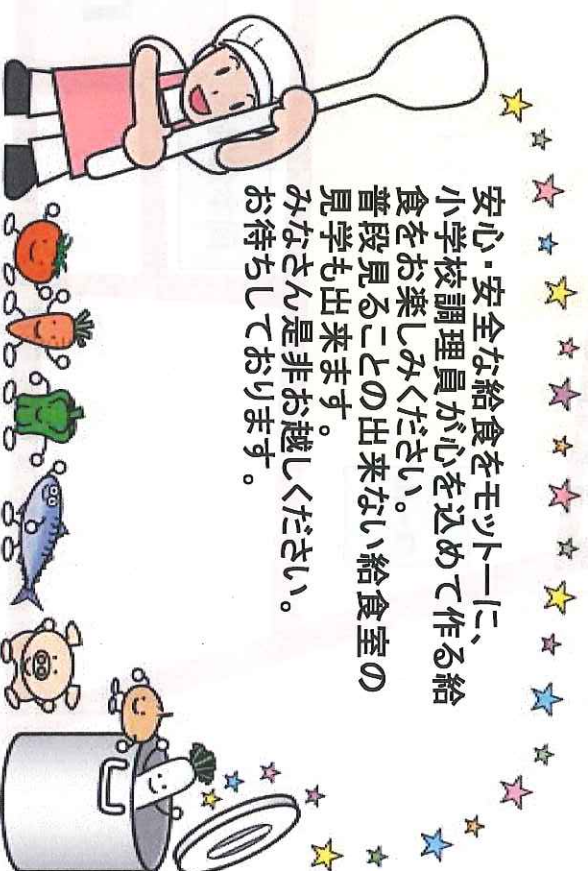 安心・安全な給食をモットーに、
小学校調理員が心を込めて作る給
食をお楽しみください。
普段見ることの出来ない給食室の
見学も出来ます。
みなさん是非お越しください。
お待ちしております。